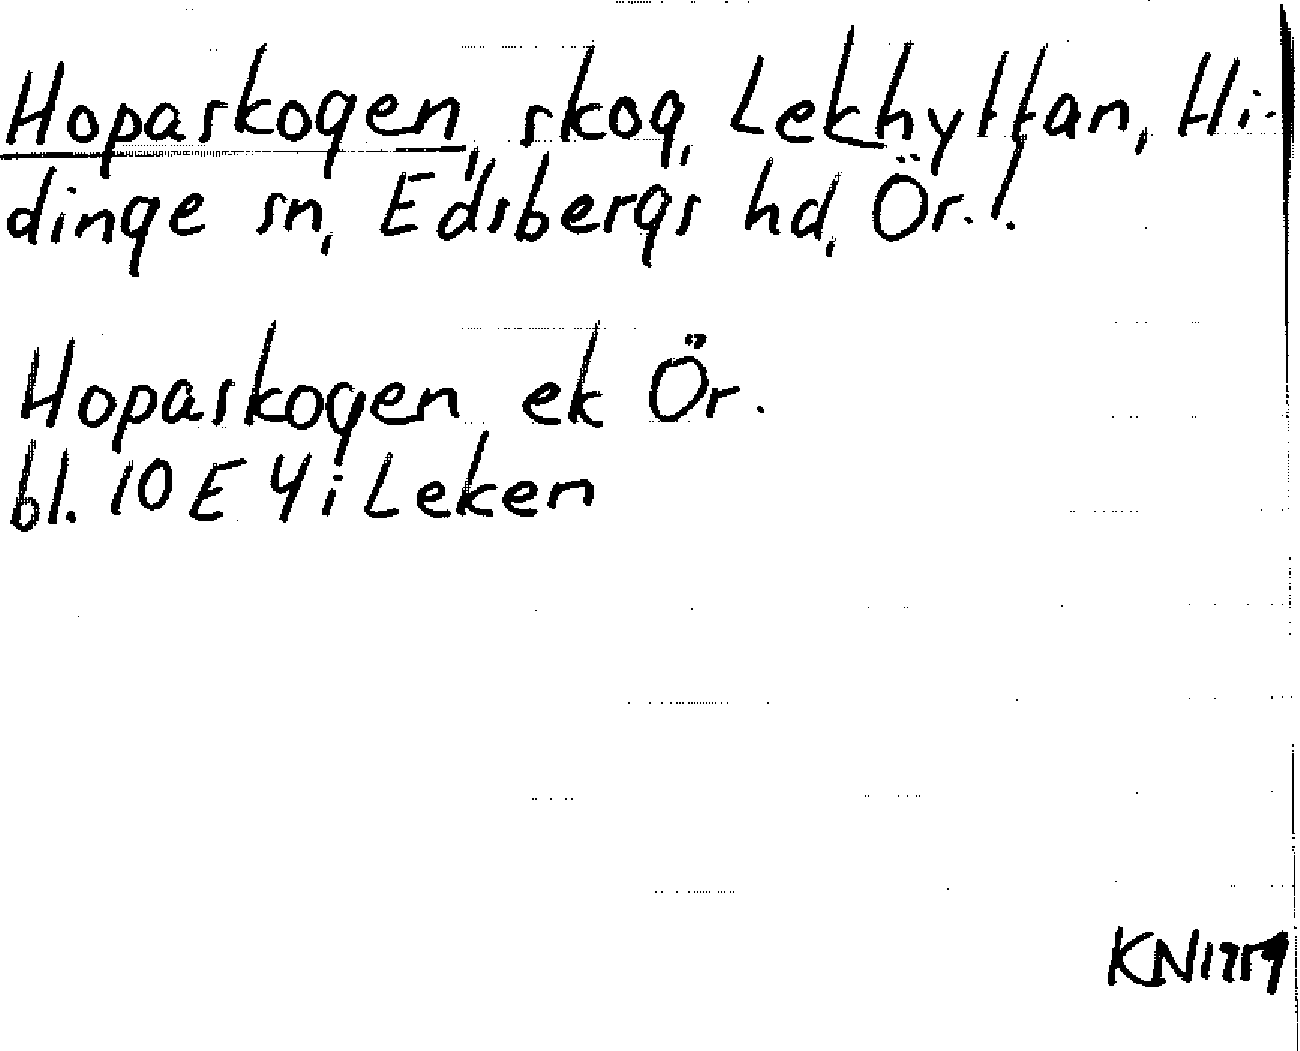 Hopaskogen, skog, Lekhyttan, Hi-
dinge sn, Edsbergs hd, Ör. l.
Hopaskogen ek Ör.
bl. 10 E 4 i Leken